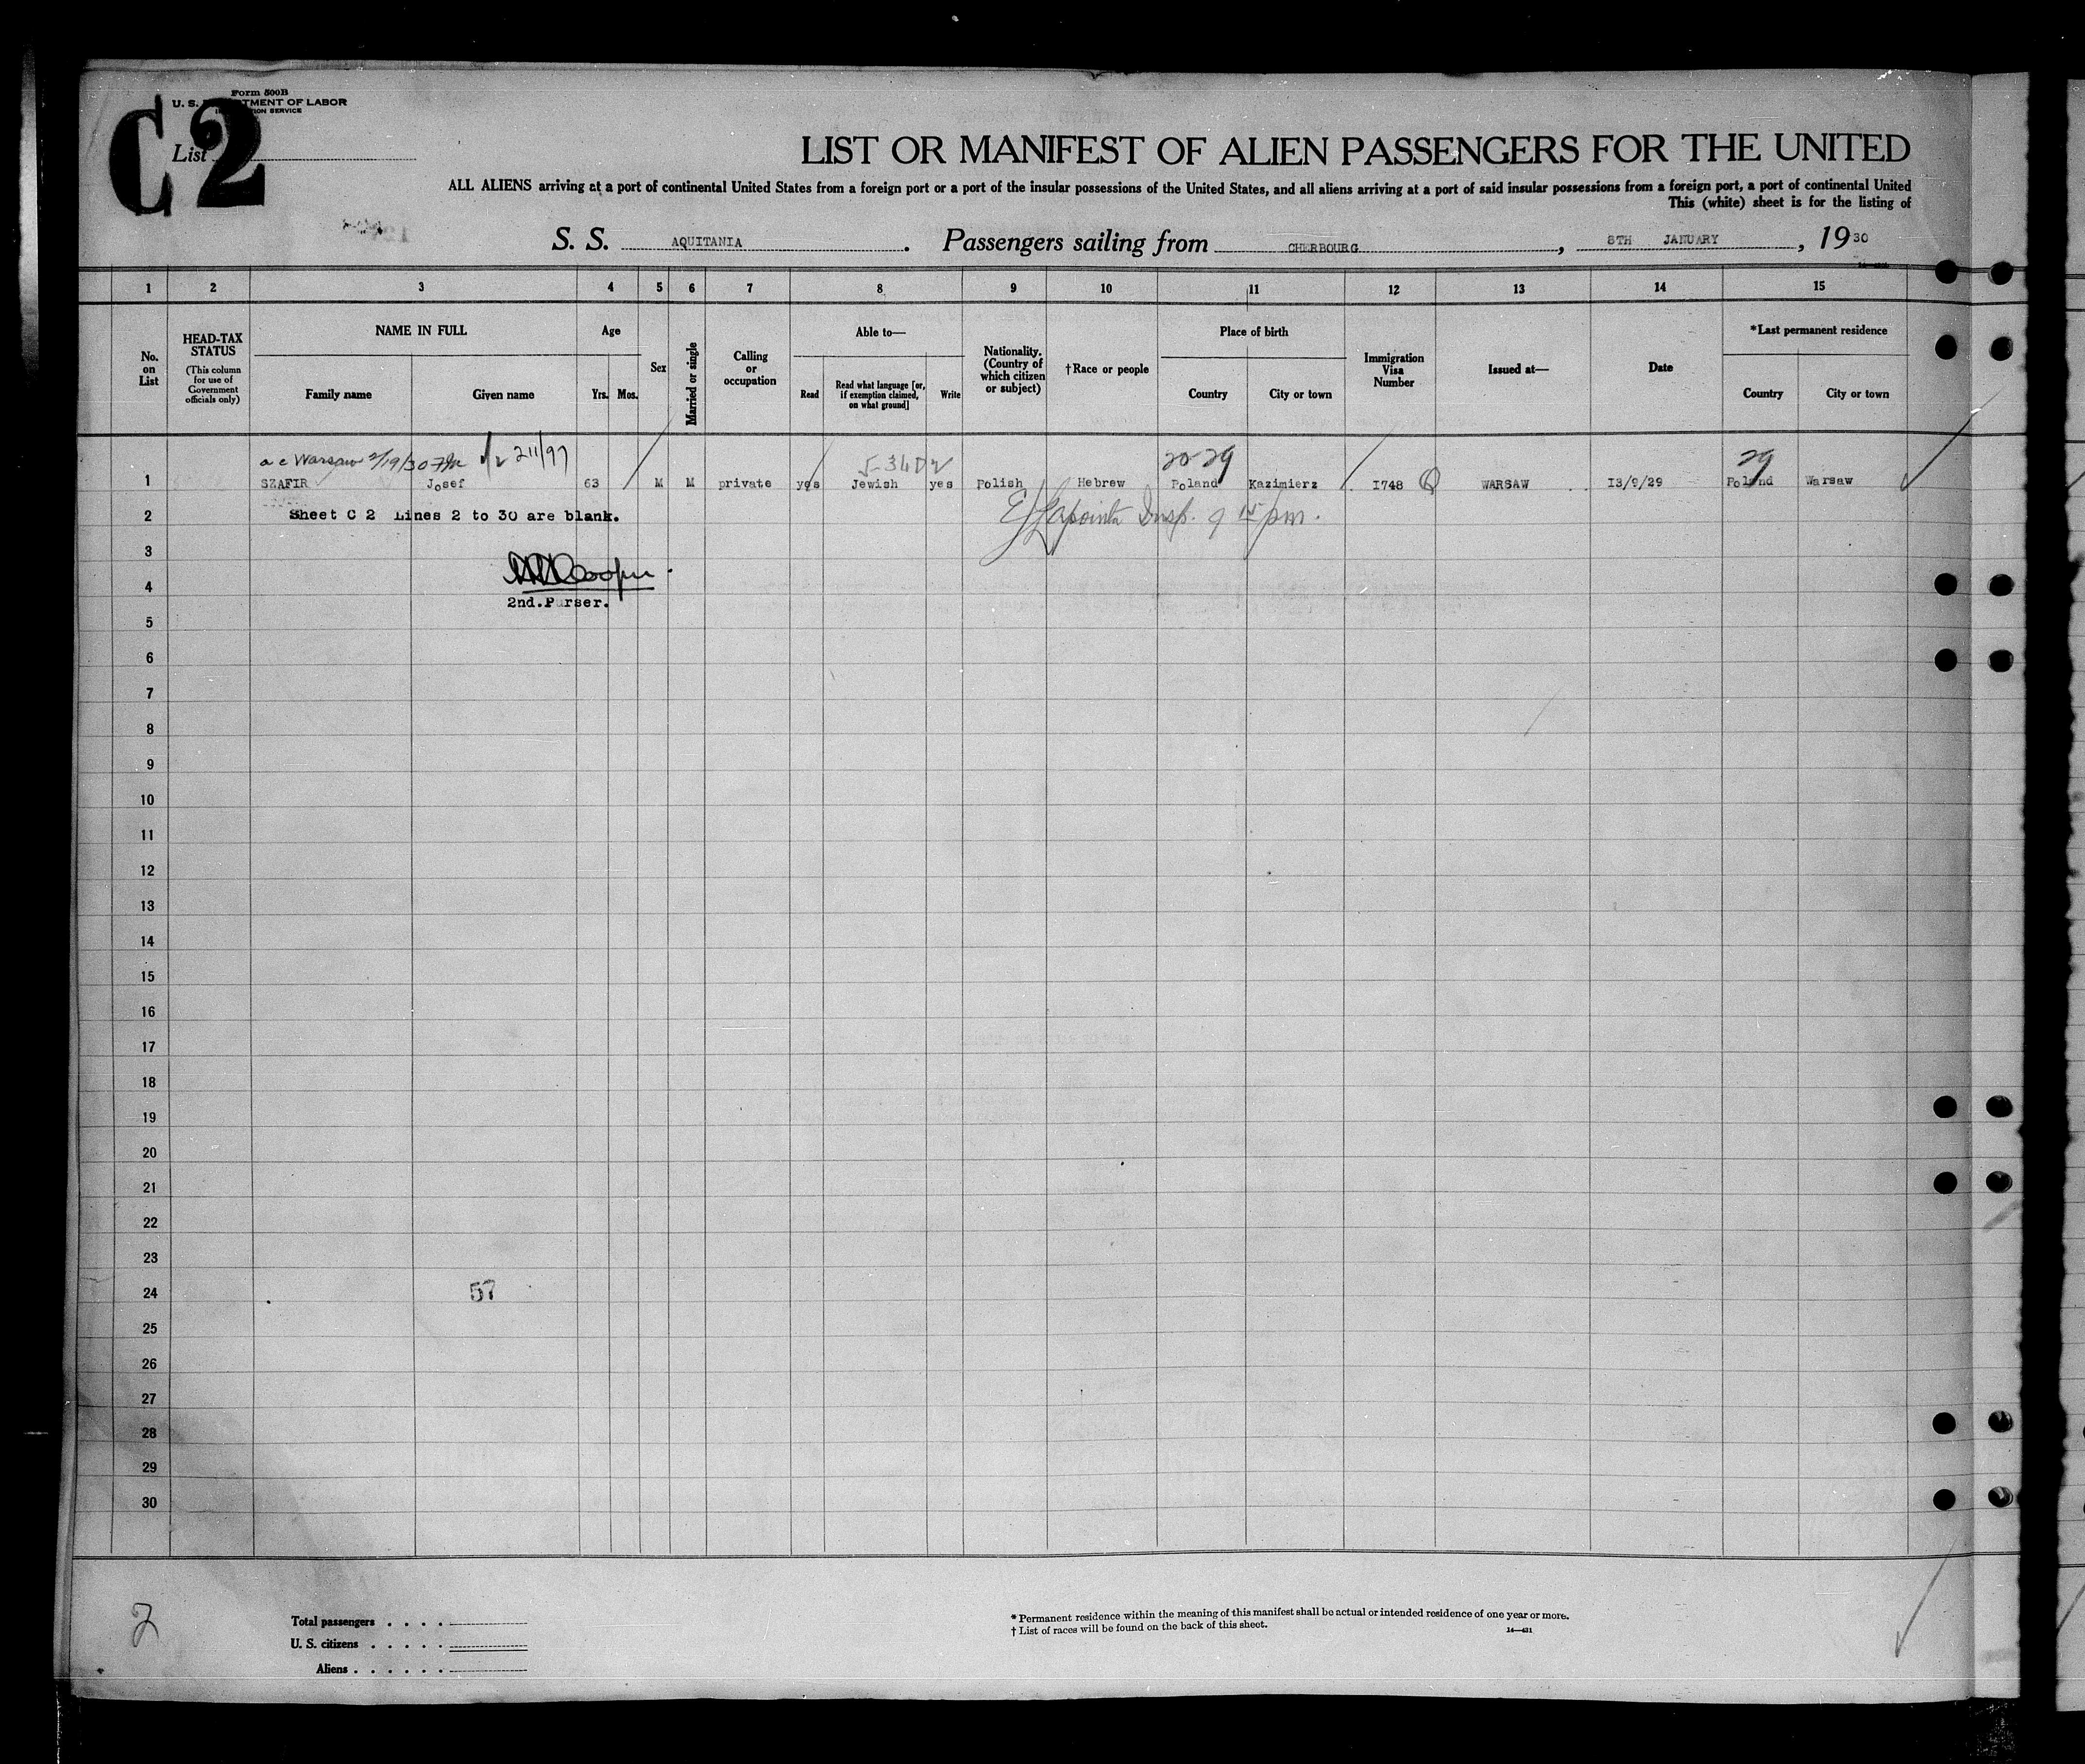 Form 500B
U. S. DEPARTMENT OF LABOR
IMMIGRATION SERVICE
C2
List
LIST OR MANIFEST OF ALIEN PASSENGERS FOR THE UNITED
ALL ALIENS arriving at a port of continental United States from a foreign port or a port of the insular possessions of the United States, and all aliens arriving at a port of said insular possessions from a foreign port, a port of continental United
This (white) sheet is for the listing of
S. S. AQUITANIA. Passengers sailing from CHERBOURG, 8TH JANUARY, 1930
1 2 3 4 5 6 7 8 9 10 11 12 13 14 15
No. on List
HEAD-TAX STATUS
(This column for use of Government officials only)
NAME IN FULL
Family name Given name
Age
Yrs. Mos.
Sex
Married or single
Calling or occupation
Able to—
Read Read what language [or, if exemption claimed, on what ground] Write
Nationality. (Country of which citizen or subject)
†Race or people
Place of birth
Country City or town
Immigration Visa Number
Issued at—
Date
*Last permanent residence
Country City or town
a c Warsaw 2/19/30 211/97 20-29 29
1 SZAFIR Josef 63 M M private yes Jewish yes Polish Hebrew Poland Kazimierz 1748 Q WARSAW 13/9/29 Poland Warsaw
2 Sheet C 2 Lines 2 to 30 are blank. Lapointe Insp. 9 15 pm.
3
4
2nd.Purser.
5
6
7
8
9
10
11
12
13
14
15
16
17
18
19
20
21
22
23
24 57
25
26
27
28
29
30
2
Total passengers . . . .
U. S. citizens . . . . .
Aliens . . . . . .
* Permanent residence within the meaning of this manifest shall be actual or intended residence of one year or more.
† List of races will be found on the back of this sheet.
14—431